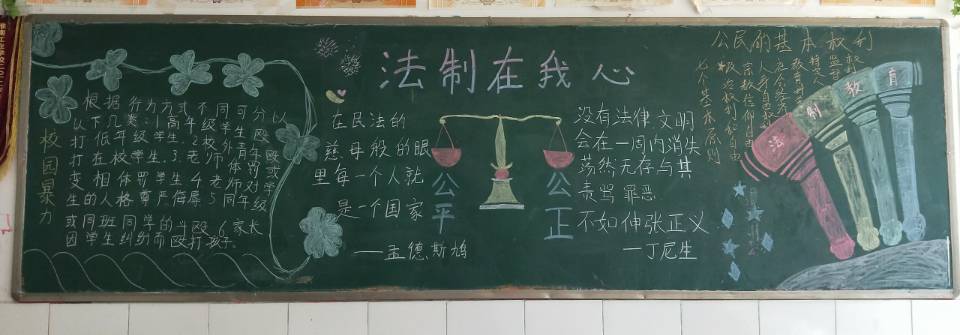 法制在我心
校园暴力
根据行为方式不同可分以
下几类:1高年级学生殴
打低年级学生.2校外青年殴
打在校学生.3.老师体罚或
变相体罚学生4老师对学
生的人格尊严侮辱5同年级
或同班同学的当殴.6.家长
因学生纠纷而殴打孩子.
在民法的
慈母般的眼
里每一个人就
是一个国家
——孟德斯鸠
公平
公正
没有法律文明
会在一周内消失
荡然无存与其
责骂罪恶
不如伸张正义
—丁尼生
公民的基本权利
宗教信仰自由
人身自由
七个基本原则
法
制
教
育